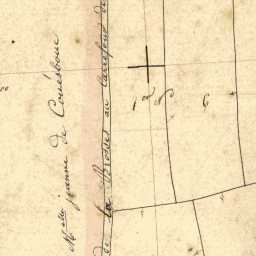 M.elle jeanne de Couësbouc
de la Brosses au Carrefour de
N.o 1